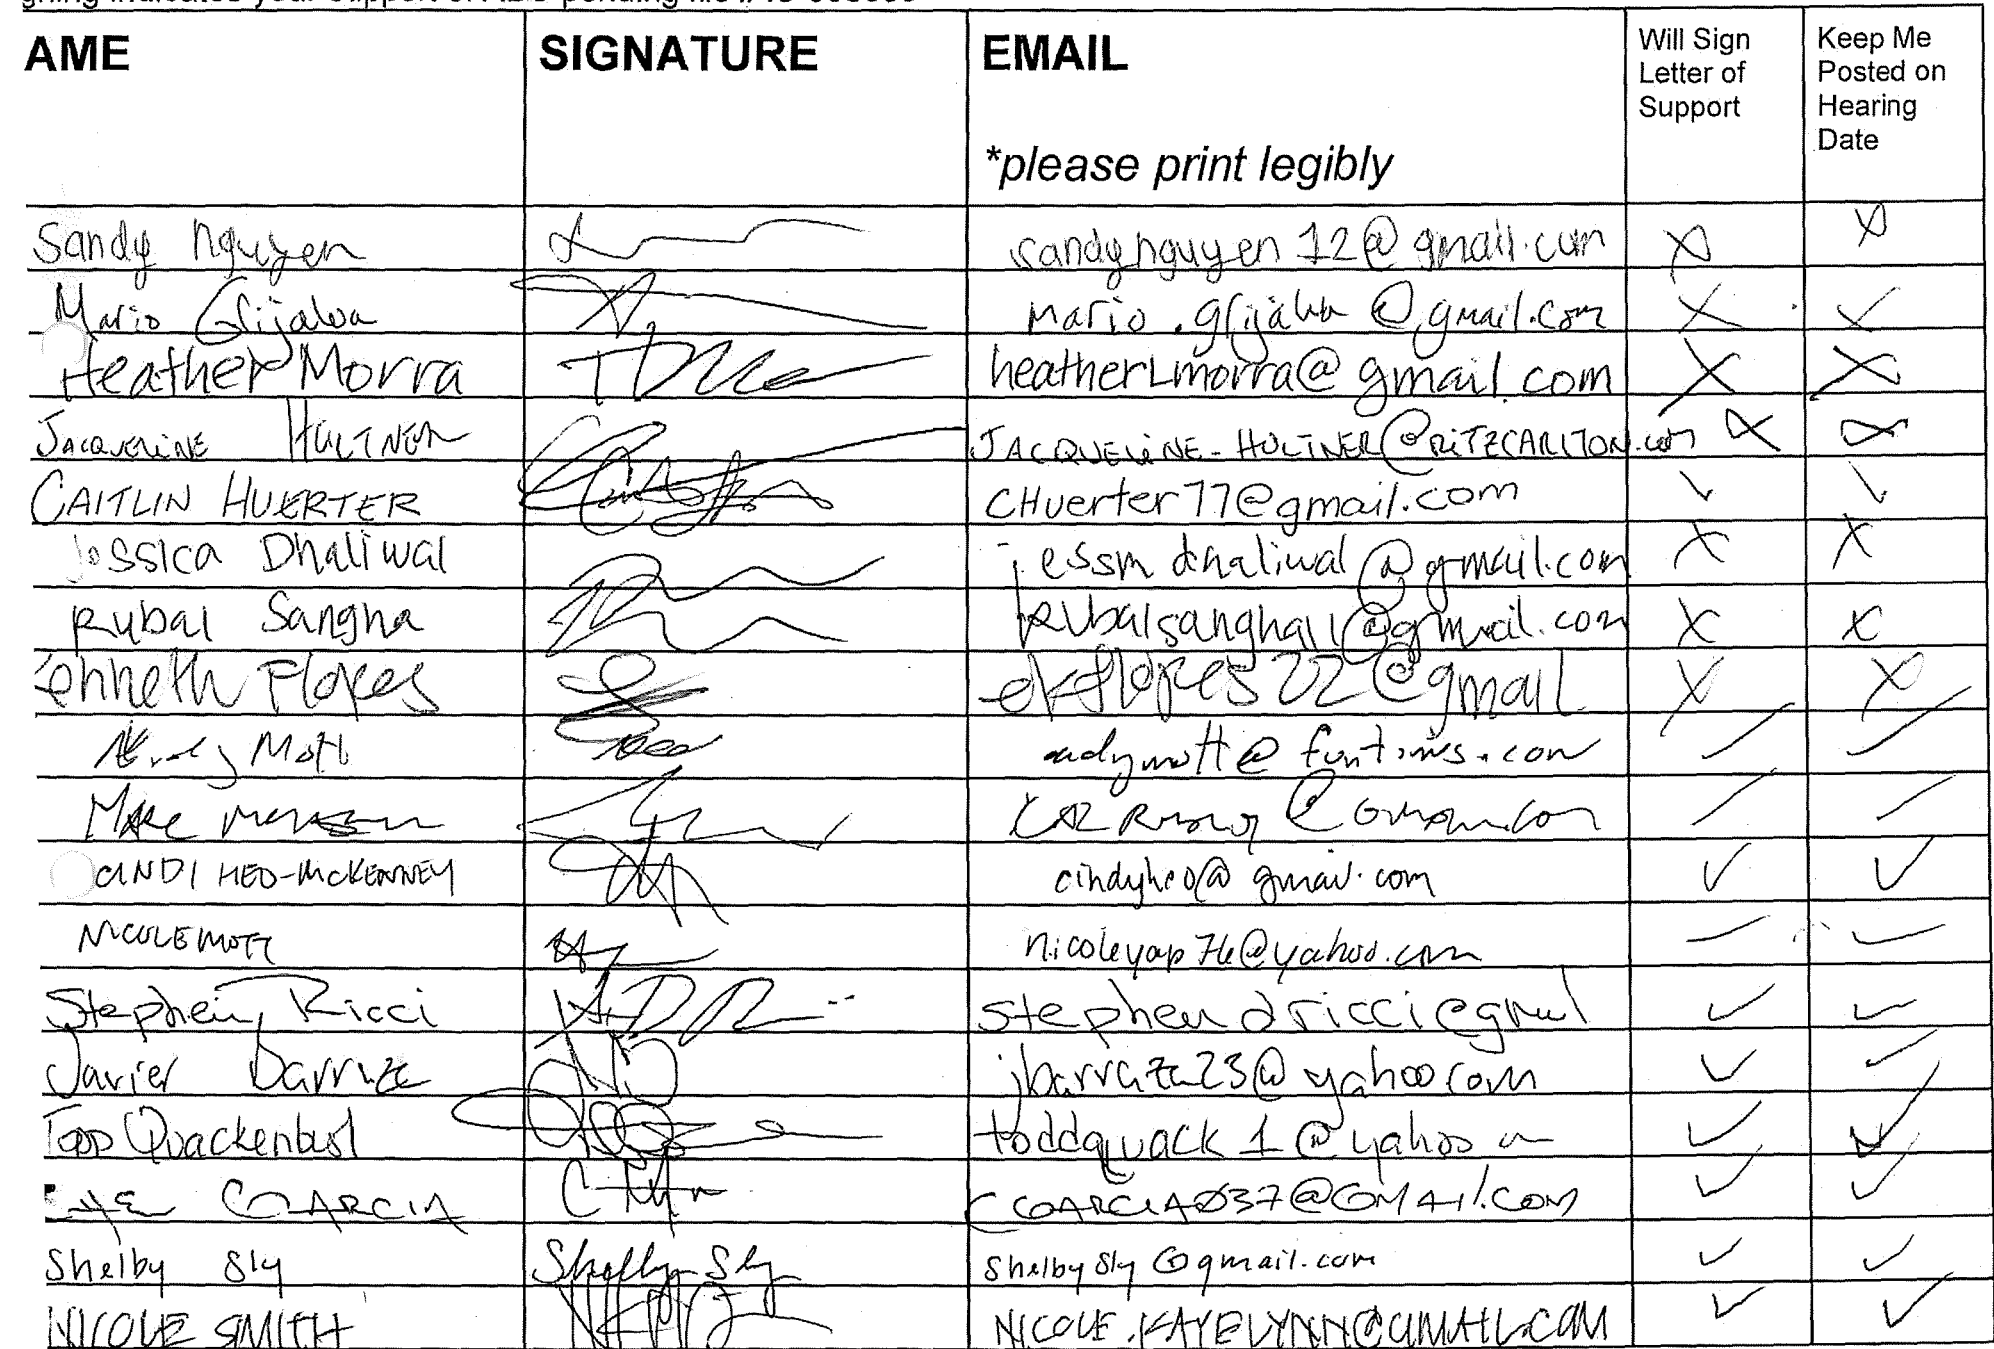 AME SIGNATURE EMAIL Will Sign Letter of Support Keep Me Posted on Hearing Date
*please print legibly
Sandy Nguyen sandynguyen12@gmail.com X X
Mario Grijalva mario.grijalva@gmail.com X ✓
Heather Morra heatherLmorra@gmail.com X X
JACQUELINE HULTNER JACQUELINE-HULTNER@RITZCARLTON.com X X
CAITLIN HUERTER CHuerter77@gmail.com ✓ ✓
Jessica Dhaliwal jessmdhaliwal@gmail.com X X
Rubal Sangha Rubalsangha11@gmail.com X X
Kenneth Flores ekflores22@gmail X X
Mott andymott@funtimes.com ✓ ✓
Mike
CINDI HEO-MCKENNEY cindyheo@gmail.com ✓ ✓
NICOLE MOTT nicoleyap76@yahoo.com ✓ ✓
Stephen Ricci stephendricci@gmail ✓ ✓
Javier Barraza jbarraza23@yahoo.com ✓ ✓
Todd Quackenbush toddquack1@yahoo ✓ ✓
GARCIA CGARCIA037@GMAIL.COM ✓ ✓
Shelby Sly Shelby Sly shelbysly@gmail.com ✓ ✓
NICOLE SMITH NICOLE.KAYELYNN@GMAIL.COM ✓ ✓